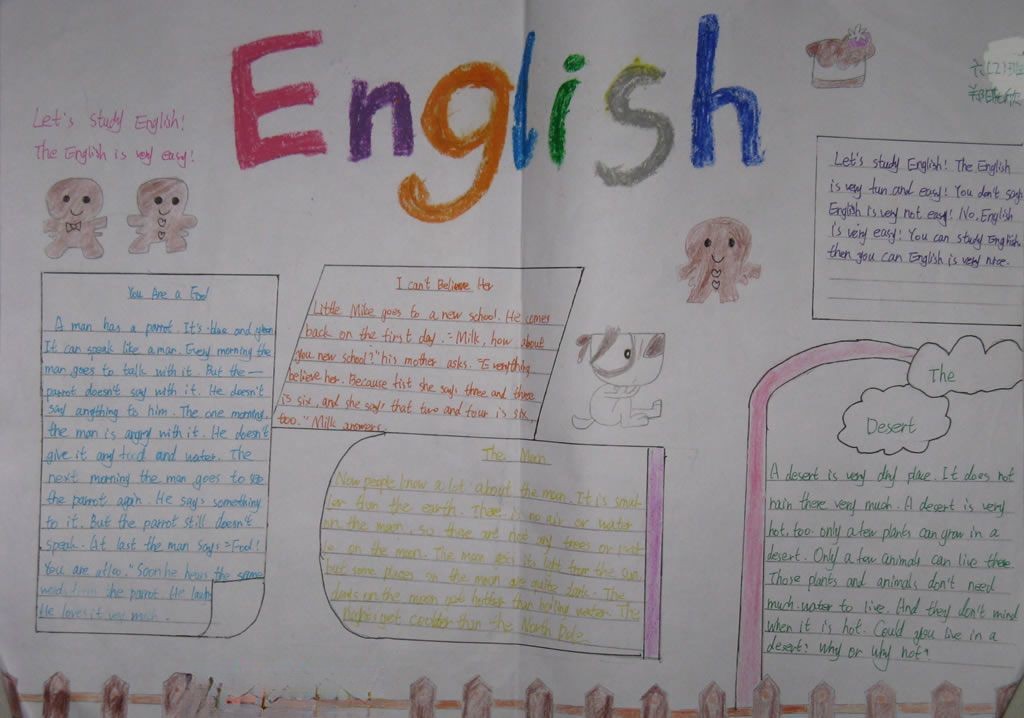 English
Let's study English!
The English is very easy!
六(2)班
Let's study English! The English
is very fun and easy! You don't say
English is very not easy! No, English
is very easy! You can study English,
then you can English is very nice.
You Are a Fool
A man has a parrot. It's blue and
It can speak like a man. Every morning the
man goes to talk with it. But the —
parrot doesn't say with it. He doesn't
say anything to him. The one morning,
the man is angry with it. He doesn't
give it any food and water. The
next morning the man goes to
the parrot again. He says something
to it. But the parrot still doesn't
speak. At last the man says: "Fool!
You are a fool." Soon he hears the same
the parrot. He
He loves it very much.
I can't Believe Her
Little Mike goes to a new school. He comes
back on the first day. "Milk, how about
you new school?" his mother asks. "Everything
believe her. Because fist she says three and three
is six, and she says that two and four is six,
too." Milk answers.
The Moon
Now people know a lot about the moon. It is smal-
ler than the earth. There is no air or water
on the moon, so there are not any trees or
on the moon. The moon gets its light from the sun,
but some places on the moon are quite dark. The
days on the moon get hotter than boiling water. The
nights get coolder than the North Pole.
The
Desert
A desert is very dry place. It does not
rain there very much. A desert is very
hot, too. only a few plants can grow in a
desert. Only a few animals can live there.
Those plants and animals don't need
much water to live. And they don't mind
when it is hot. Could you live in a
desert? Why or why not?